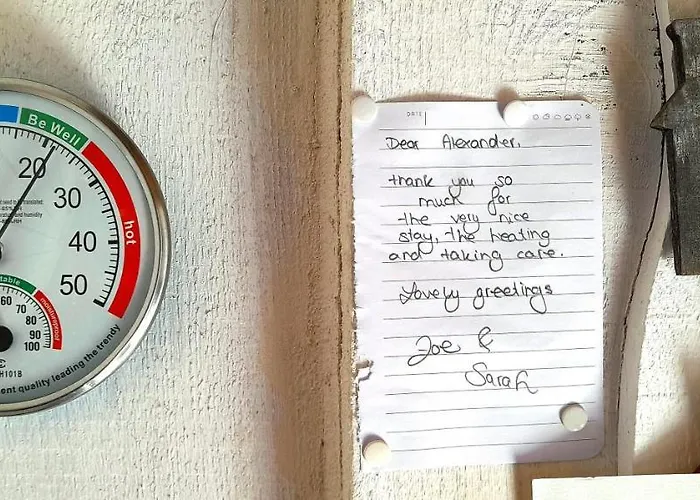 Be Well
20
30
40
50
hot
60
70
80
90
100
TH101B
ent quality leading the trendy
DATE
Dear Alexander,
thank you so
much for
the very nice
stay, the heating
and taking care.
Lovely greetings
Zoe &
Sarah